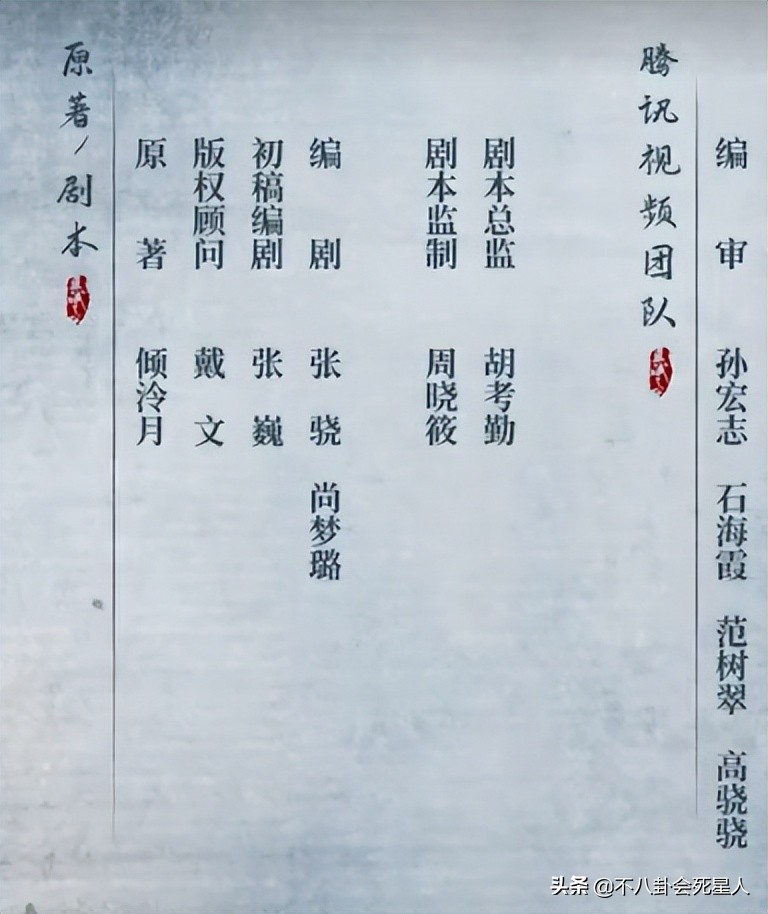 原著/剧本
原著 倾泠月
版权顾问 戴文
初稿编剧 张巍
编剧 张骁 尚梦璐
剧本监制 周晓筱
剧本总监 胡考勤
腾讯视频团队
编审 孙宏志 石海霞 范树翠 高骁骁
头条 @不八卦会死星人